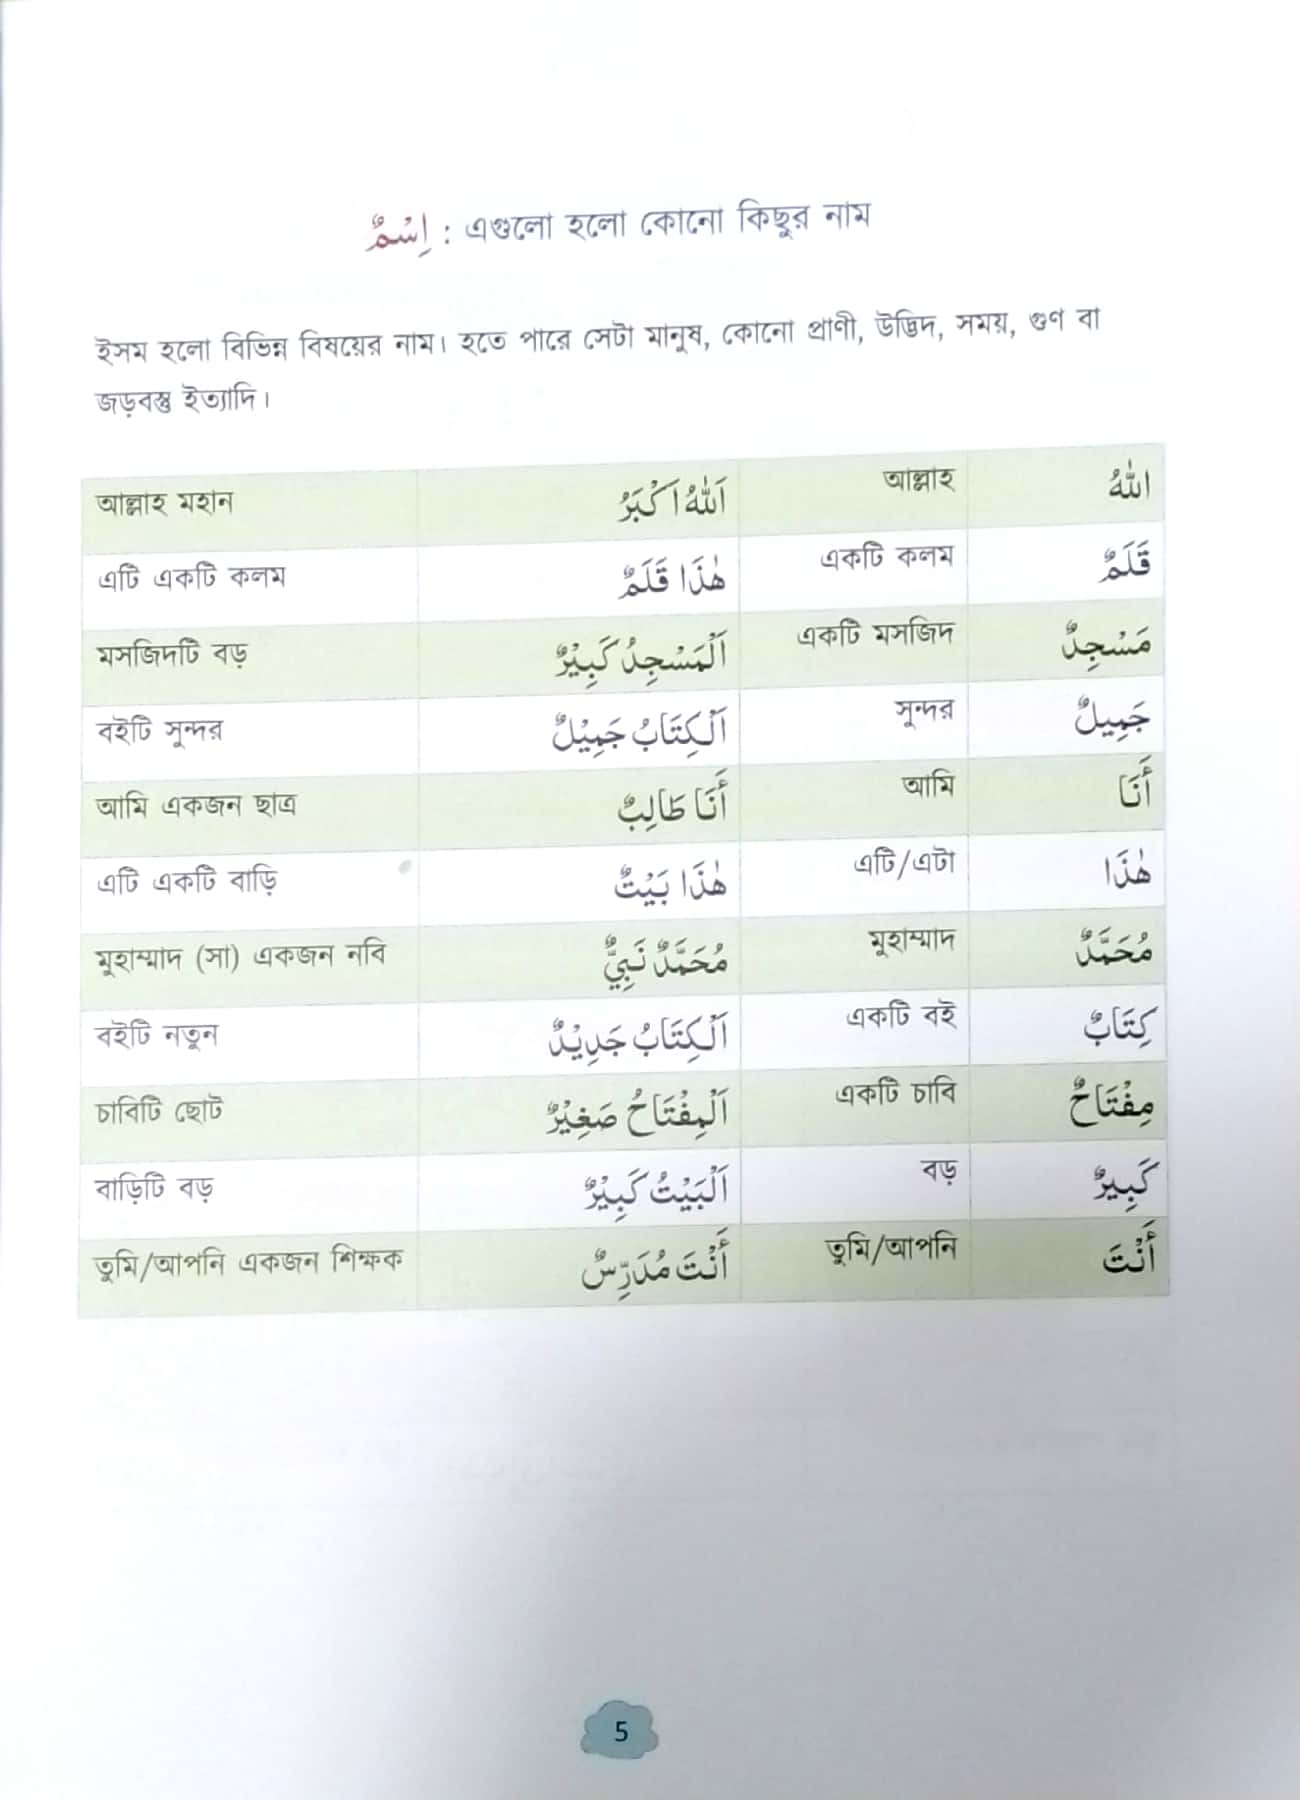 اِسْمٌ : এগুলো হলো কোনো কিছুর নাম
ইসম হলো বিভিন্ন বিষয়ের নাম। হতে পারে সেটা মানুষ, কোনো প্রাণী, উদ্ভিদ, সময়, গুণ বা
জড়বস্তু ইত্যাদি।
আল্লাহ মহান اَللّٰهُ اَكْبَرُ আল্লাহ اللّٰهُ
এটি একটি কলম هٰذَا قَلَمٌ একটি কলম قَلَمٌ
মসজিদটি বড় اَلْمَسْجِدُ كَبِيْرٌ একটি মসজিদ مَسْجِدٌ
বইটি সুন্দর اَلْكِتَابُ جَمِيْلٌ সুন্দর جَمِيلٌ
আমি একজন ছাত্র أَنَا طَالِبٌ আমি أَنَا
এটি একটি বাড়ি هٰذَا بَيْتٌ এটি/এটা هٰذَا
মুহাম্মাদ (সা) একজন নবি مُحَمَّدٌ نَبِيٌّ মুহাম্মাদ مُحَمَّدٌ
বইটি নতুন اَلْكِتَابُ جَدِيْدٌ একটি বই كِتَابٌ
চাবিটি ছোট اَلْمِفْتَاحُ صَغِيْرٌ একটি চাবি مِفْتَاحٌ
বাড়িটি বড় اَلْبَيْتُ كَبِيْرٌ বড় كَبِيرٌ
তুমি/আপনি একজন শিক্ষক أَنْتَ مُدَرِّسٌ তুমি/আপনি أَنْتَ
5